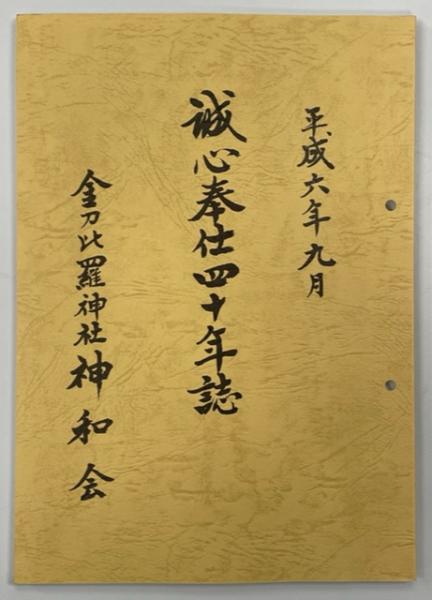 平成六年九月
誠心奉仕四十年誌
金刀比羅神社神和会